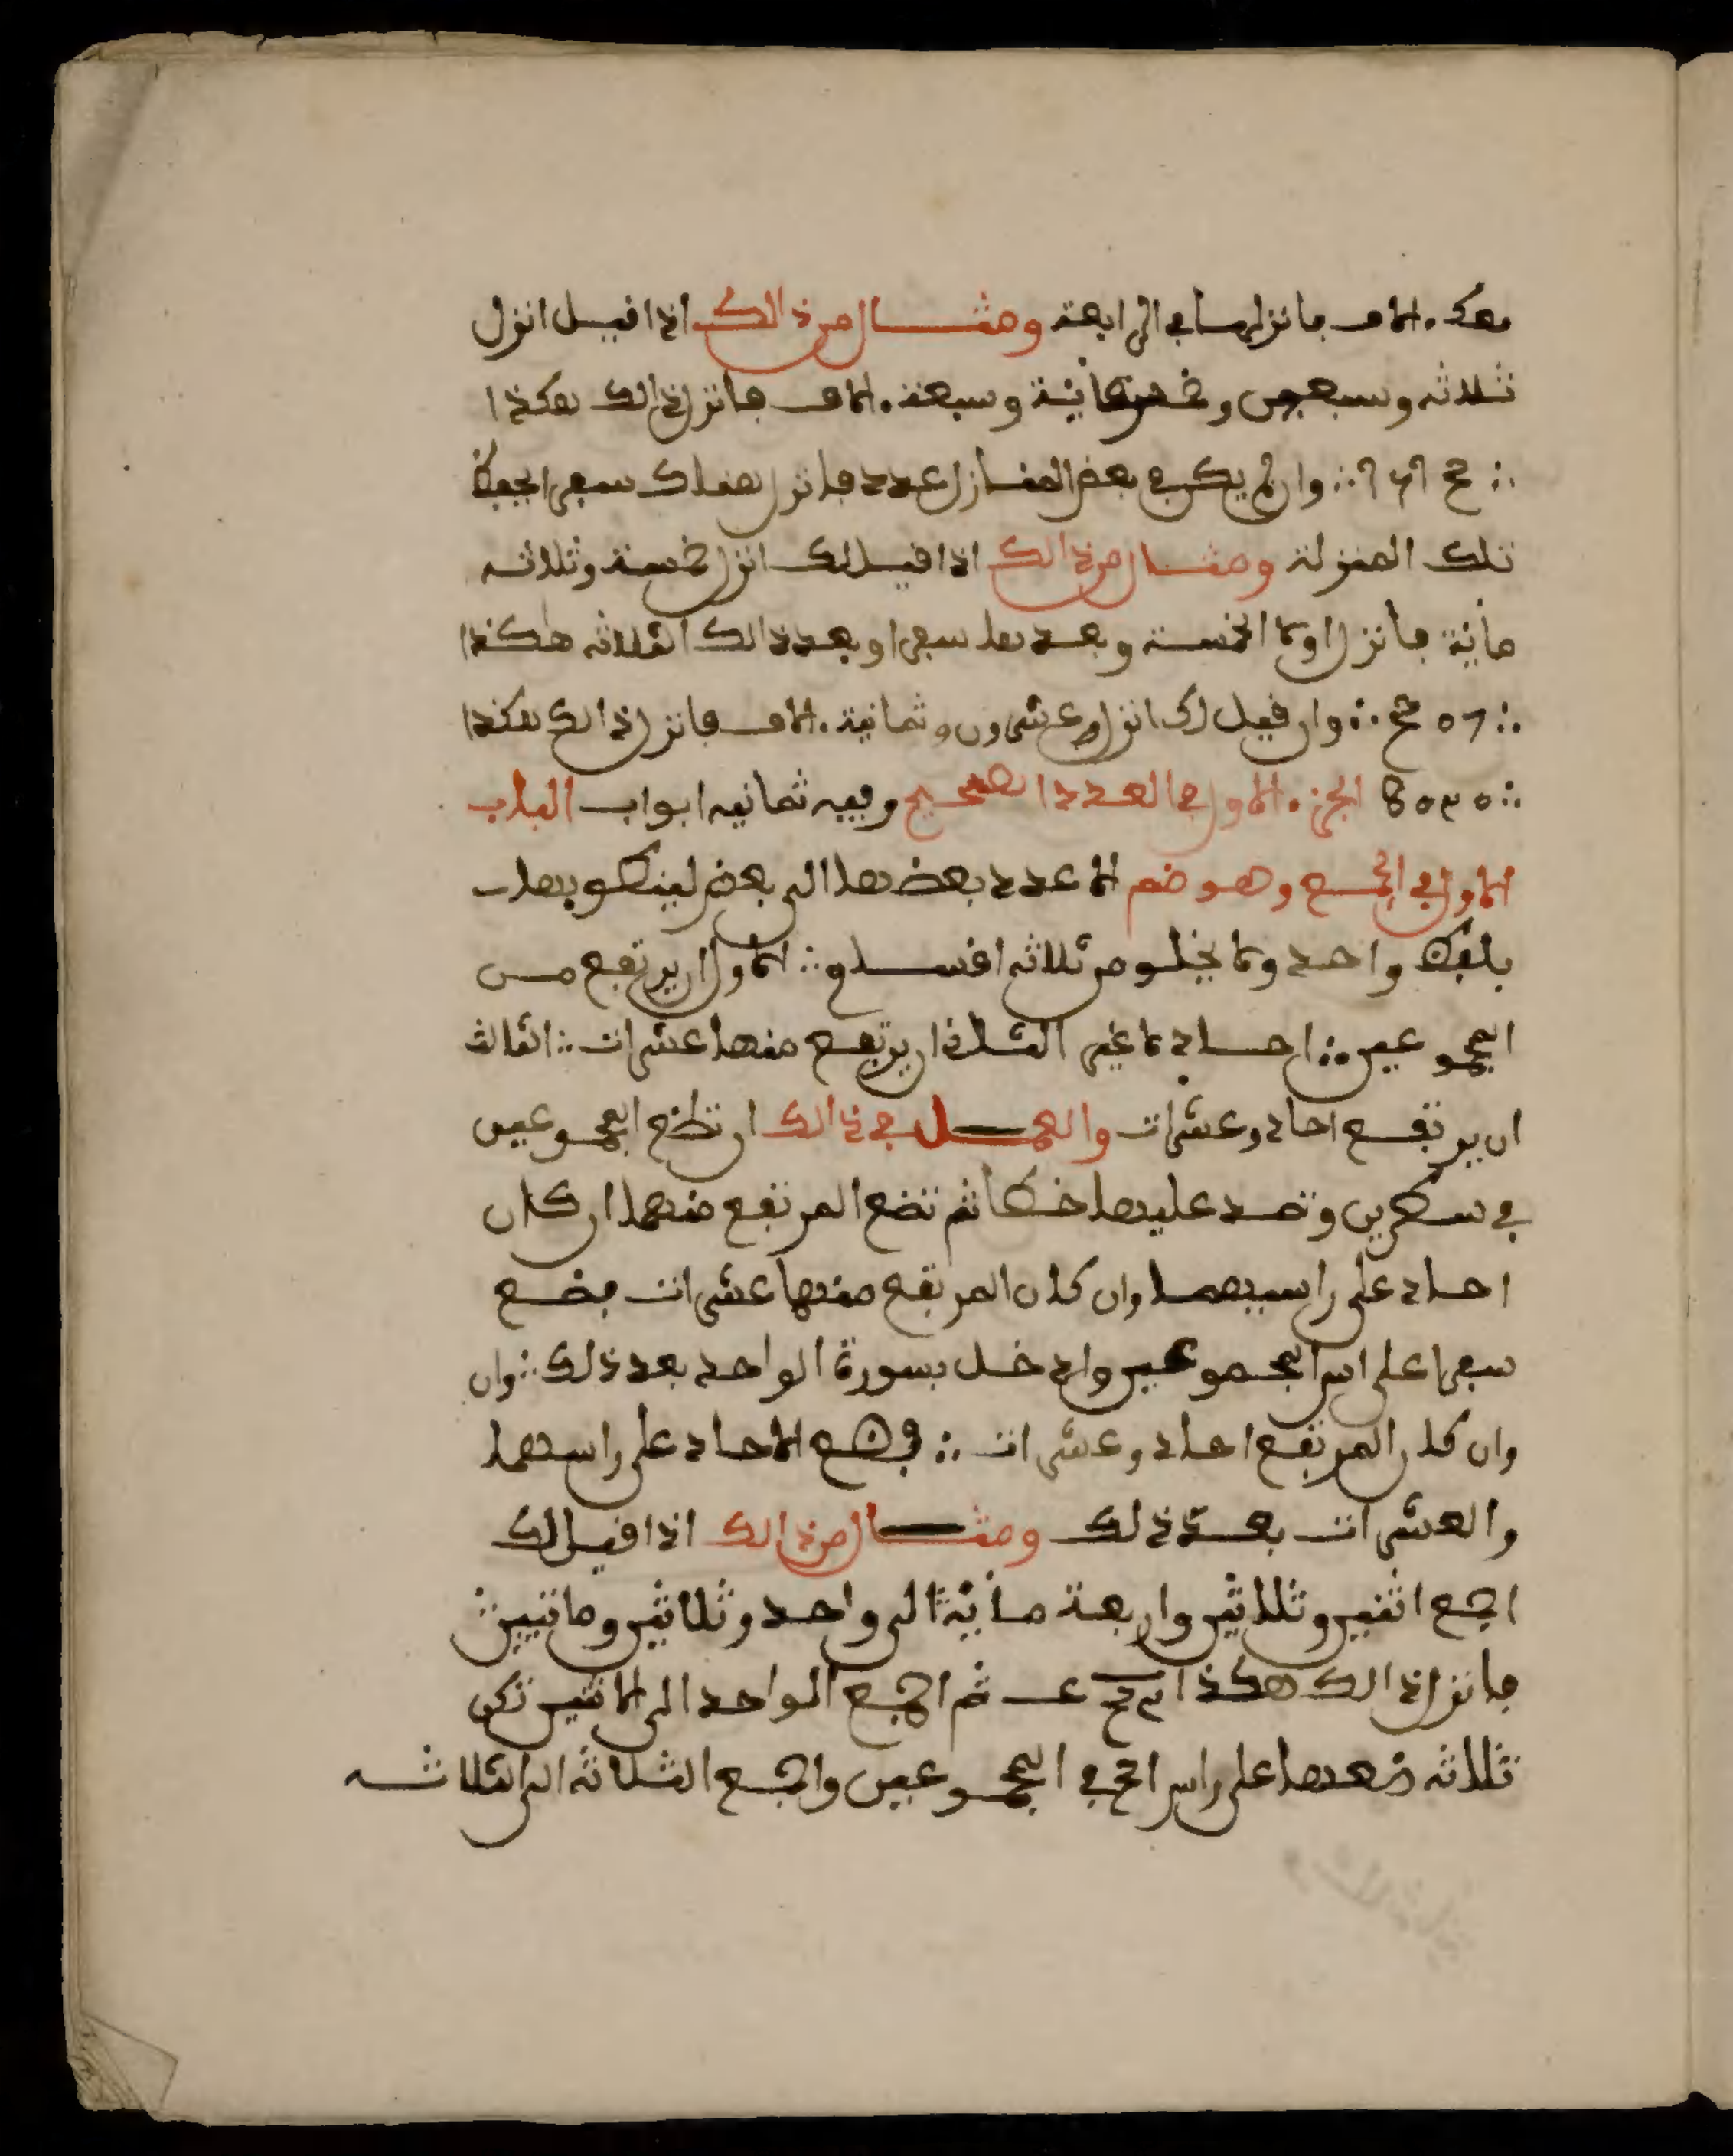 معك الاف فانزلها في الرابعة ومثال من ذالك اذا قيل انزل
ثلاثه وسبعين وخمسمائية وسبعة الاف فانزل ذالك هكذا
وان لم يكن في بعض المنازل عدد فانزل هنلك سبعرا يحفظ
تلك المنزلة ومثال من ذالك اذا قيل لك انزل خمسة وثلاثه
مائية فانزل اولا الخمسة وبعدها سبعرا وبعد ذالك الثلاثه هكذا
وان قيل لك انزل عشرون وثمانية الاف فانزل ذالك هكذا
الجزء الاول في العدد الصحيح وفيه ثمانيه ابواب الباب
الاول في الجمع وهو ضم الاعدد بعضها الى بعض لينطو بها
بلفظ واحد ولا يخلو من ثلاثه اقسام الاول ان يرتفع من
المجموعين احاد لا غير الثان ان يرتفع منها عشرات الثالث
ان يرتفع احاد وعشرات والعمل في ذالك ان تضع المجموعين
في سطرين وتمد عليها خطا ثم تضع المرتفع منهما ان كان
احاد على راسيهما وان كان المرتفع منها عشرات فضع
سبعرا على راس المجموعين وادخل بسورة الواحد بعد ذلك وان
وان كان المرتفع احاد وعشرات فضع الاحاد على راسهما
والعشرات بعد ذلك ومثال من ذالك اذا قيل لك
اجمع اثنين وثلاثين واربعة مائية الى واحد وثلاثين وماتيين
فانزل ذالك هكذا ثم اجمع الواحد الى الاثنين تكن
ثلاثه ضعها على راس المجموعين واجمع الثلاثه الى الثلاثه